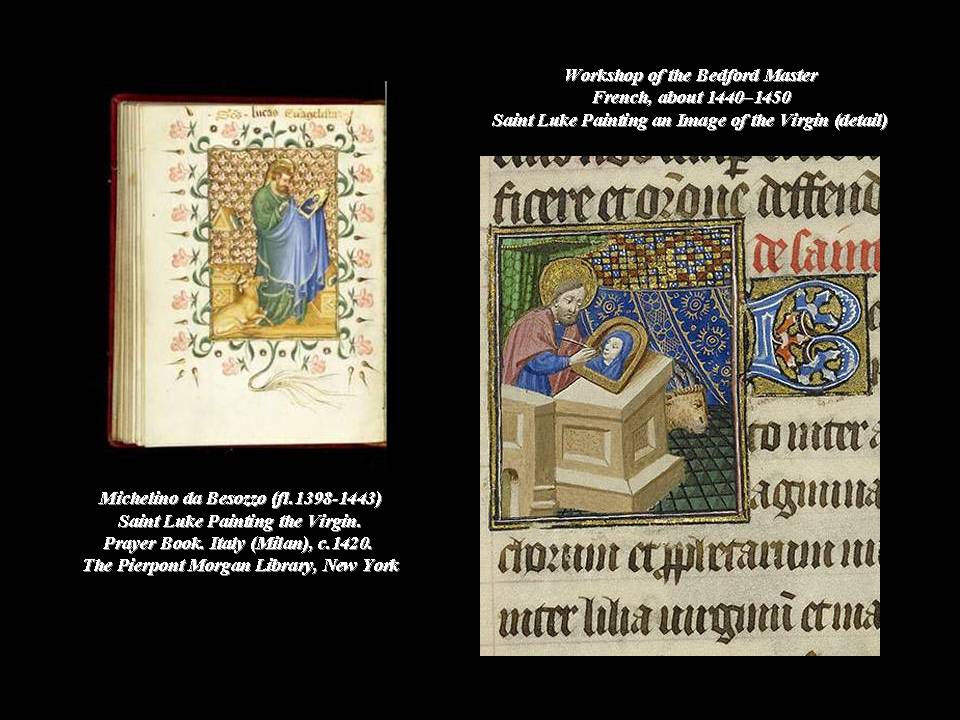 Workshop of the Bedford Master
French, about 1440–1450
Saint Luke Painting an Image of the Virgin (detail)
lucas Euāgelista
ficere et orōne deffend
de sain
to inter
agmina
inter lilia virginū et ma
Michelino da Besozzo (fl.1398-1443)
Saint Luke Painting the Virgin.
Prayer Book. Italy (Milan), c.1420.
The Pierpont Morgan Library, New York